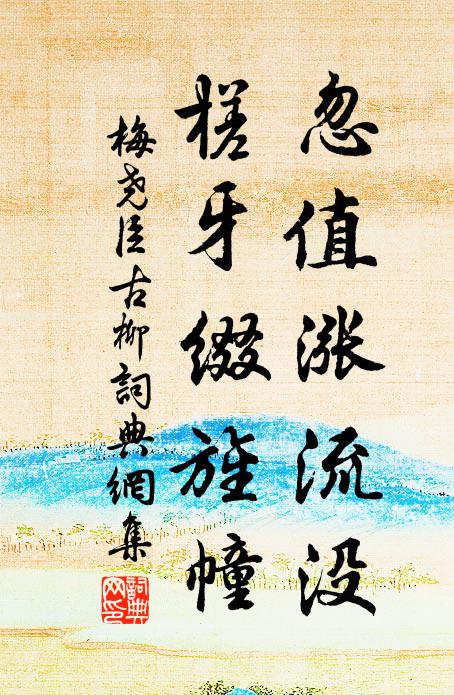 忽值涨流没
槎牙缀旌幢
梅尧臣古柳詞典網集
詞典网印